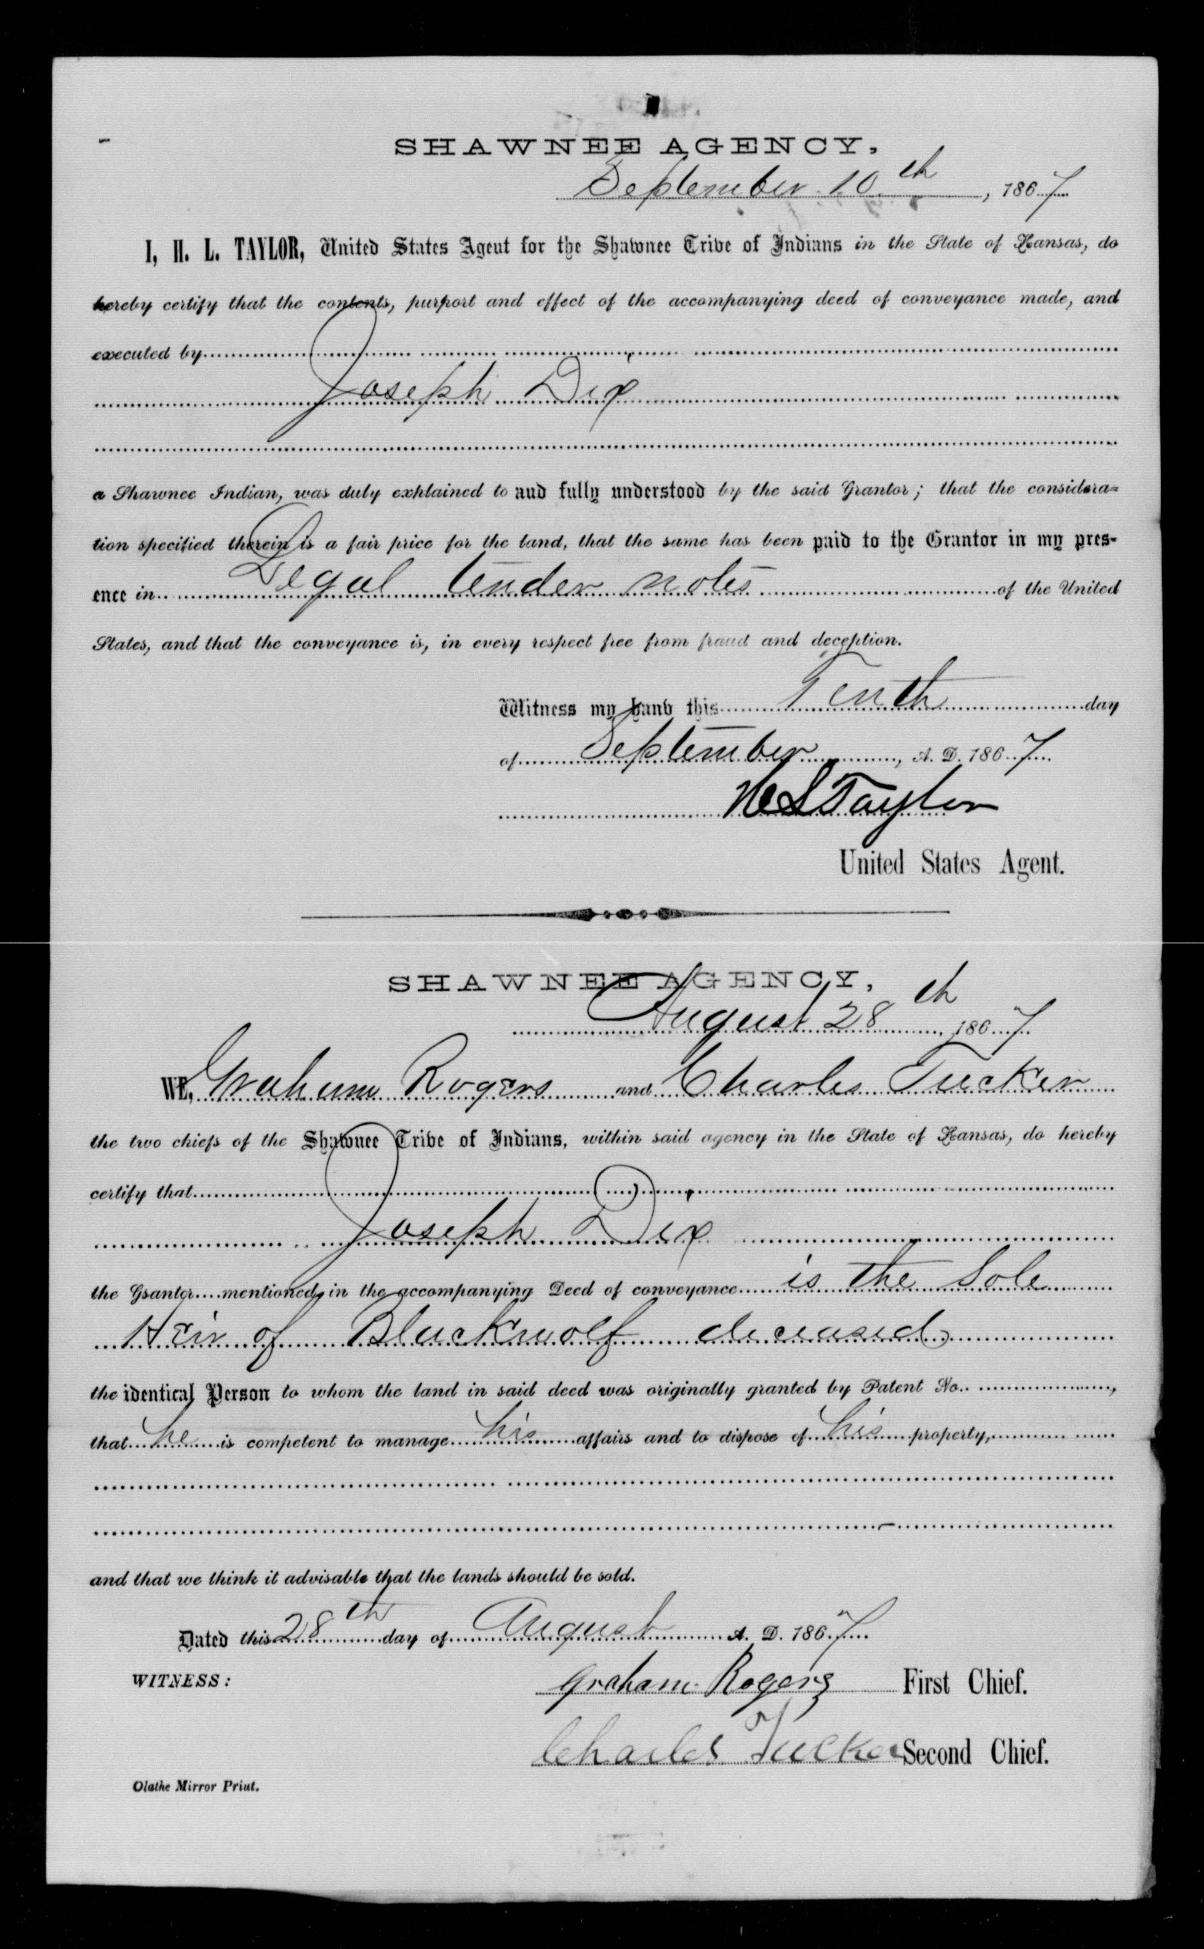 SHAWNEE AGENCY,
September 10th, 1867
I, H. L. TAYLOR, United States Agent for the Shawnee Tribe of Indians in the State of Kansas, do
hereby certify that the contents, purport and effect of the accompanying deed of conveyance made, and
executed by
Joseph Dix
a Shawnee Indian, was duly explained to and fully understood by the said Grantor; that the considera-
tion specified therein is a fair price for the land, that the same has been paid to the Grantor in my pres-
ence in Legal tender notes of the United
States, and that the conveyance is, in every respect free from fraud and deception.
Witness my hand this Tenth day
of September, A. D. 1867
H L Taylor
United States Agent.
SHAWNEE AGENCY,
August 28th 1867
WE, Graham Rogers and Charles Tucker
the two chiefs of the Shawnee Tribe of Indians, within said agency in the State of Kansas, do hereby
certify that
Joseph Dix
the Grantor mentioned, in the accompanying Deed of conveyance is the Sole
Heir of Blackwolf deceased
the identical Person to whom the land in said deed was originally granted by Patent No. ,
that he is competent to manage his affairs and to dispose of his property,
and that we think it advisable that the lands should be sold.
Dated this 28th day of August A. D. 1867
WITNESS: Graham Rogers First Chief.
Charles Tucker Second Chief.
Olathe Mirror Print.